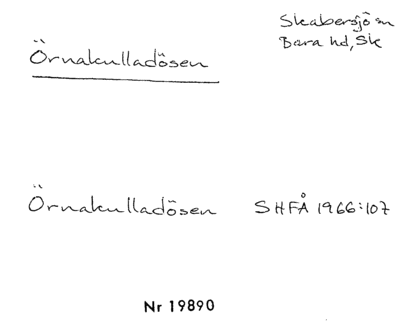 Örnakulladösen
Skabersjö sn
Bara hd, Sk
Örnakulladösen SHFÅ 1966:107
Nr 19890